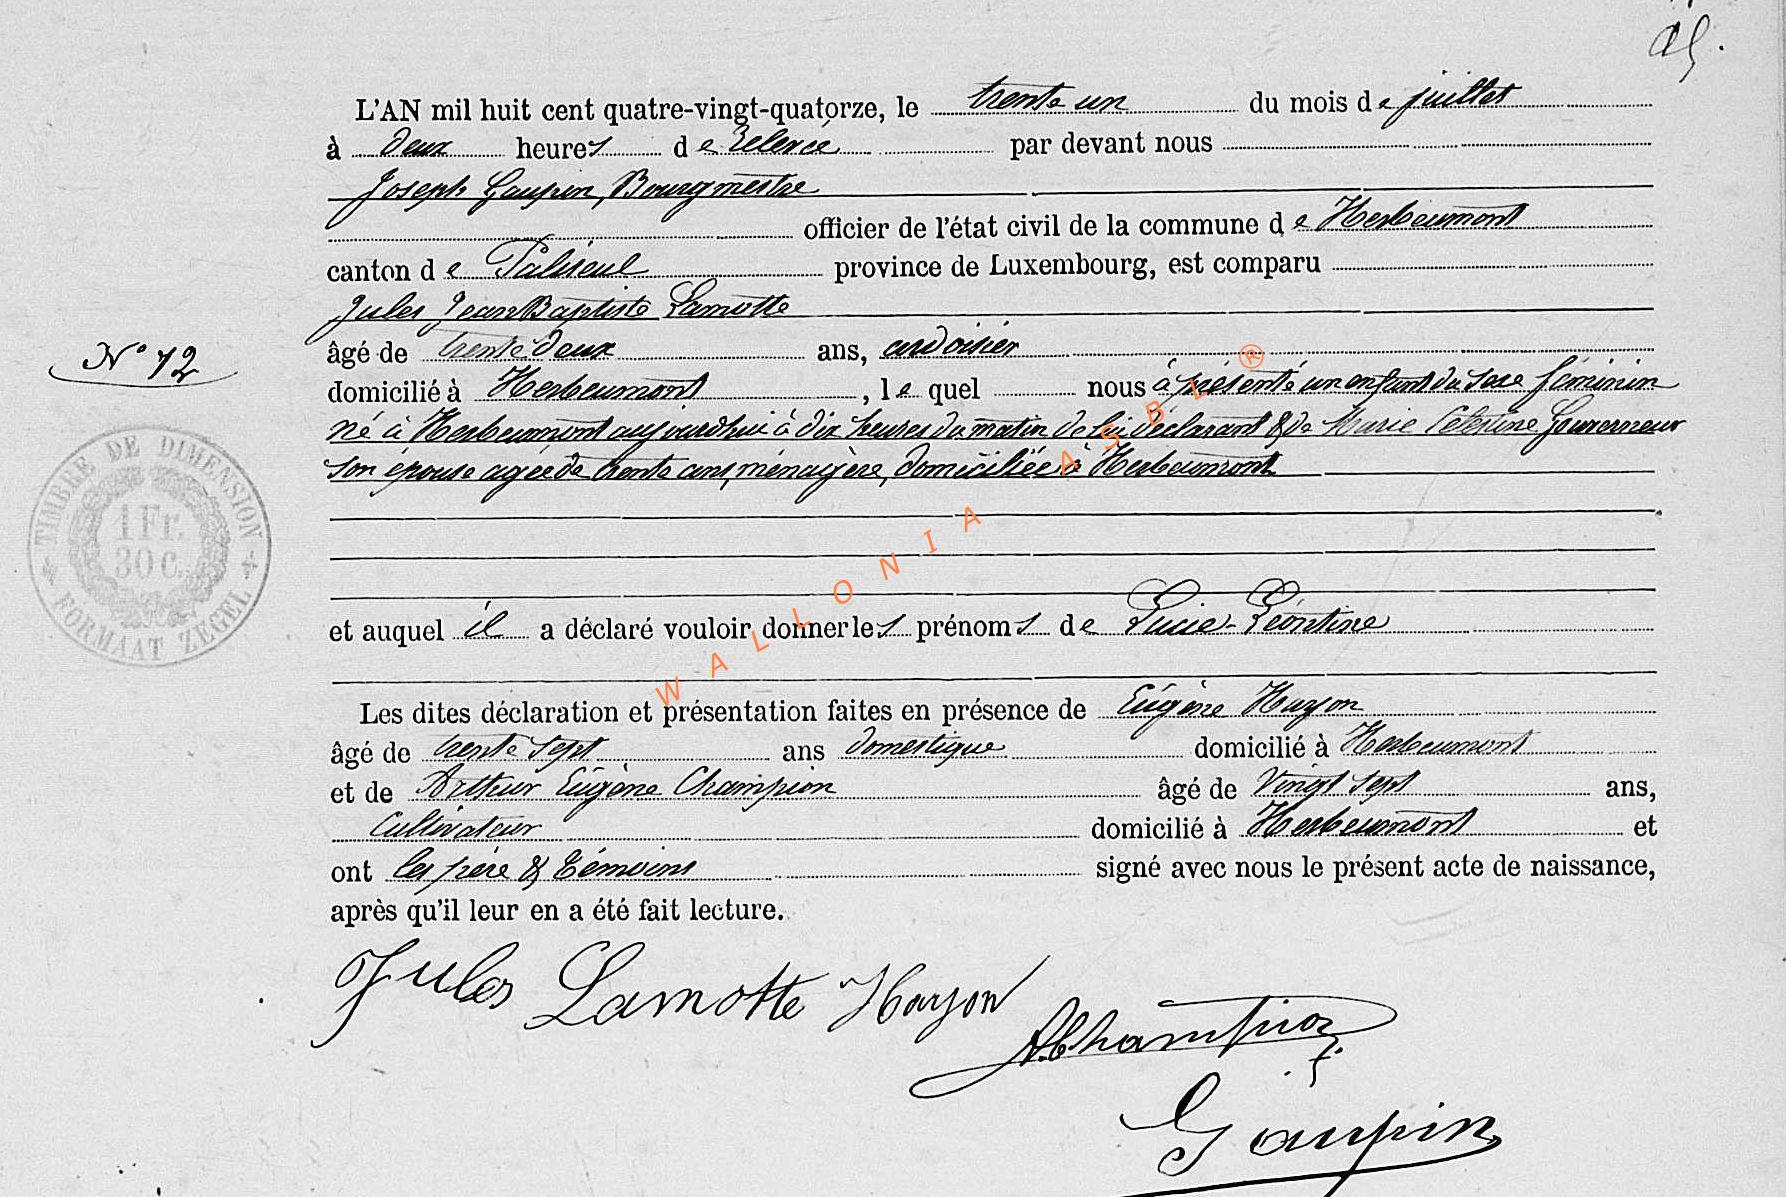 L'AN mil huit cent quatre-vingt-quatorze, le trente un du mois de juillet
à deux heures de relevée par devant nous
Joseph Gaupin, Bourgmestre
officier de l'état civil de la commune de Herbeumont
canton de Paliseul province de Luxembourg, est comparu
Jules Jean Baptiste Lamotte
âgé de trente deux ans, ardoisier
N° 12
domicilié à Herbeumont, lequel nous à présenté un enfant du sexe féminin
né à Herbeumont aujourdhui à dix heures du matin de lui déclarant & de Marie Celestine Gouverneur
son épouse agée de trente ans, ménagère, domiciliée à Herbeumont
TIMBRE DE DIMENSION
1 Fr.
30 c.
FORMAAT ZEGEL
et auquel il a déclaré vouloir donner les prénoms de Lucie-Léontine
Les dites déclaration et présentation faites en présence de Eugène Hazon
âgé de trente sept ans domestique domicilié à Herbeumont
et de Arthur Eugène Champion âgé de vingt sept ans,
cultivateur domicilié à Herbeumont et
ont les père & témoins signé avec nous le présent acte de naissance,
après qu'il leur en a été fait lecture.
Jules Lamotte Hazon
A. Champion
Gaupin
WALLONIA ASBL ®